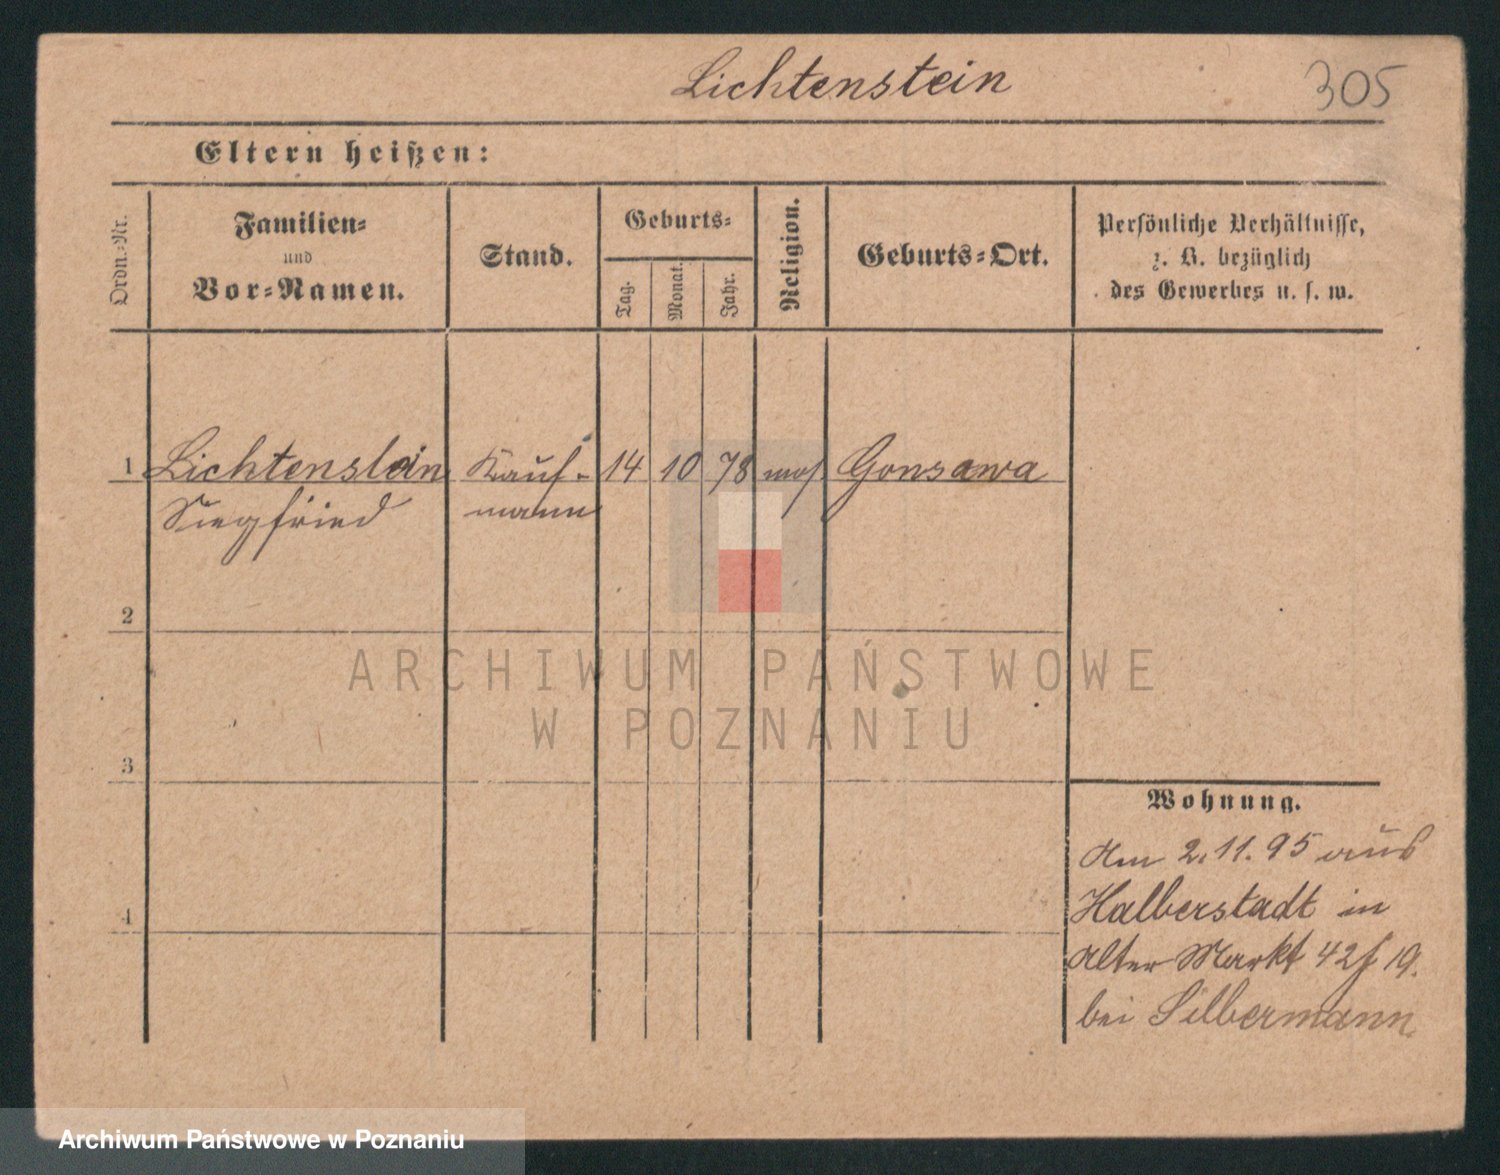 Lichtenstein
305
Eltern heißen:
Ordn.-Nr.
Familien-
und
Vor-Namen.
Stand.
Geburts-
Tag.
Monat.
Jahr.
Religion.
Geburts-Ort.
Persönliche Verhältnisse,
z. B. bezüglich
des Gewerbes u. s. w.
1 Lichtenstein Kauf- 14 10 78 mos Gonsawa
Siegfried mann
2
ARCHIWUM PAŃSTWOWE
W POZNANIU
3
Wohnung.
Am 2.11.95 aus
Halberstadt in
4
Alter Markt 42 19.
bei Silbermann
Archiwum Państwowe w Poznaniu